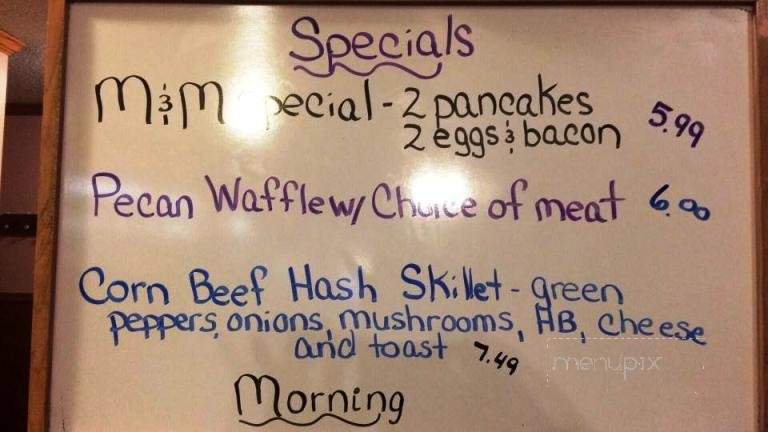 Specials
M&M Special - 2 pancakes
2 eggs & bacon 5.99
Pecan Waffle w/ Choice of meat 6.00
Corn Beef Hash Skillet - green
peppers, onions, mushrooms, HB, cheese
and toast 7.49
menupix
Morning